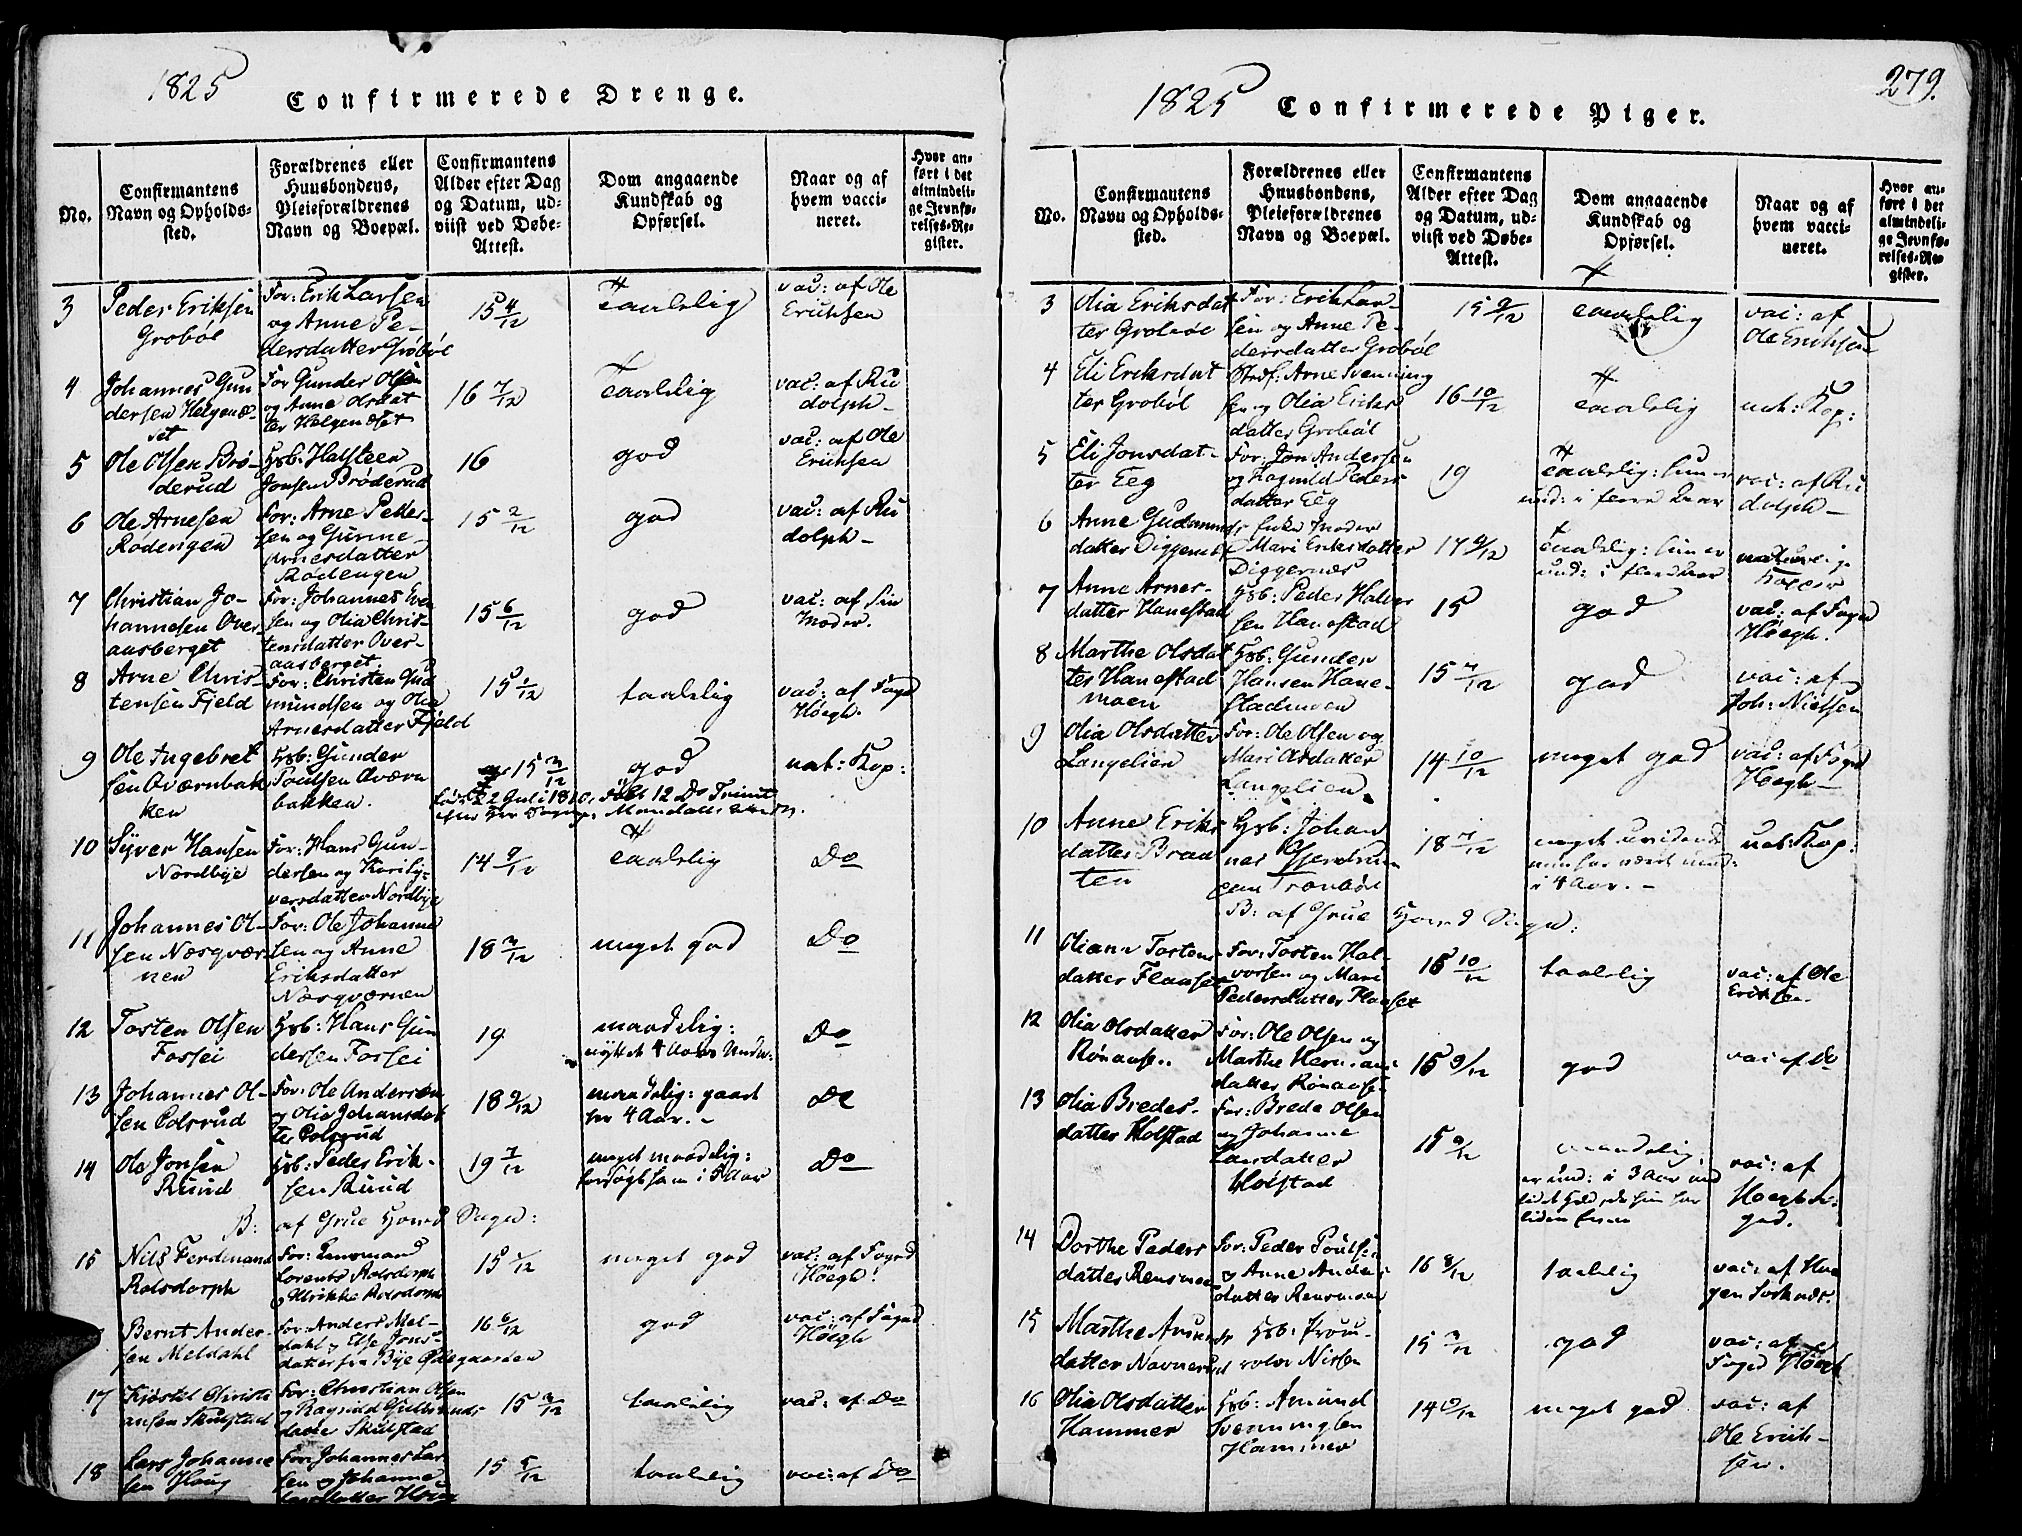 1825
Confirmerede Drenge.
No.
Confirmantens
Navn og Opholds-
sted.
Forældrenes eller
Huusbondens,
Pleieforældrenes
Navn og Boepæl.
Confirmantens
Alder efter Dag
og Datum, ud-
viist ved Døbe-
Attest.
Dom angaaende
Kundskab og
Opførsel.
Naar og af
hvem vacci-
neret.
Hvor an-
ført i det
almindeli-
ge Jevnfø-
relses-Re-
gister.
3
Peder Eriksen
Grobøl
For: Erik Larsen
og Anne Pe-
dersdatter Grobøl
15 4/12
taalelig
vac: af Ole
Eriksen
4
Johannes Gun
dersen Helgenæ-
set
For Gunder Olsen
og Anne Olsdat
ter Helgenæset
16 7/12
taalelig
vac: af Ru
dolph-
5
Ole Olsen Brø-
derud
Hsb: Halsteen
Jonsen Brøderud
16
god
vac: af Ole
Eriksen
6
Ole Arnesen
Rødengen
For: Arne Peder-
sen og Gunne
Arnesdatter
Rødengen
15 2/12
god
vac: af Ru
dolph-
7
Christian Jo-
hannesen Over-
aasberget
For: Johannes Eve
sen og Olia Chris-
tensdatter Over-
aasberget.
15 6/12
god
vac: af sin
Moder.
8
Arne Chris-
tensen Fjeld
For: Christen Gud
mundsen og Olia
Arnesdatter Fjeld
15 1/12
taalelig
vac: af Foged
Høegh.
9
Ole Ingebret
sen Qværnbak
ken
Hsb: Gunder
Poulsen Qværn
bakken.
15 3/12
god
nat: Kop:
10
Syver Hansen
Nordbye
For: Hans Gun-
dersen og Kari Sy-
versdatter Nordbye
14 9/12
taalelig
Do
11
Johannes Ol-
sen Næsqvær
nen
For: Ole Johanne
sen og Anne
Eriksdatter
Næsqværnen
18 3/12
meget god
Do
12
Torsten Olsen
Fossei
Hsb: Hans Gun
dersen Fossei
19
maadelig:
nyttet 4 Aars Under:
Do
13
Johannes Ol-
sen Polsrud
For: Ole Andersen
og Olia Johansdat
ter Polsrud
18 9/12
maadelig: gaaet
her 4 Aar. -
Do
14
Ole Jonsen
Ruud
Hsb: Peder Erik-
sen Ruud
19 7/12
meget maadelig:
i 5 Aar
Do
B: af Grue Hoved Sogn:
15
Nils Ferdinand
Rolsdorph
For:
Lorents Rolsdorph
og Ulrikke Rolsdorph
15 1/12
meget god
vac: af Foged
Høegh.
Bernt Ander-
sen Meldahl
For: Anders Mel-
dahl og Else Jons-
datter fra Bye Ødegaarden
16 6/12
god
vac: af Foged
Høegh
17
Kjøstel Christi
ansen Skulstad
For: Christian Olsen
og Ragnild Gulbrands
datter Skulstad
15 3/12
taalelig
vac: af Do
18
Lars Johanne
sen Haug
For: Johannes Lar
sen og Johanne
Larsdatter Haug
15 5/12
taalelig
vac: af Do
1825
Confirmerede Piger.
279.
No.
Confirmantens
Navn og Opholds-
sted.
Forældrenes eller
Huusbondens,
Pleieforældrenes
Navn og Boepæl.
Confirmantens
Alder efter Dag
og Datum, ud-
viist ved Døbe-
Attest.
Dom angaaende
Kundskab og
Opførsel.
Naar og af
hvem vacci-
neret.
Hvor an-
ført i det
almindeli-
ge Jevnfø-
relses-Re-
gister.
3
Olia Eriksdat
ter Grobøl
For: Erik Lar
sen og Anne Pe-
dersdatter Grobøl
15 9/12
taalelig
vac: af
Ole Eriksen
4
Eli Eriksdat
ter Grobøl
Stdf: Arne Svenning
sen og Olia Eriks
datter Grobøl
16 10/12
taalelig
nat: Kop:
5
Eli Jonsdat-
ter Eeg
For: Jon Andersen
og Ragnild Peders
datter Eeg
19
taalelig: hun er
und: i flere Aar
vac: af Ru
dolph-
6
Anne Gudmunds
datter Diggernæs
Enke Moder
Mari Eriksdatter
Diggernæs
17 9/12
taalelig: hun er
und: i flere Aar
naturlige
Kopper
7
Anne Arnes-
datter Hanestad
Hsb: Peder Halvor
sen Hanestad
15
god
vac: af Foged
Høegh.
8
Marthe Olsdat
ter Hanestad
moen
Hsb: Gunder
Hansen Hane-
stadmoen
15 4/12
god
vac: af
Joh: Nielsen
9
Olia Olsdatter
Langelien
For: Ole Olsen og
Mari Olsdatter
Langelien.
14 10/12
meget god
vac: af Foged
Høegh-
10
Anne Eriks
datter Braa
ten
Hsb: Johan
nes Gjerdrum
18 4/12
i 4 Aar. -
nat: Kop:
B: af Grue Hoved Sogn:
11
Oliana Torstens
datter Flauset
For: Torsten Hal-
vorsen og Mari
Pedersdatter Flauset
15 10/12
taalelig
vac: af Ole
Eriksen.
12
Olia Olsdatter
Rønaasen
For: Ole Olsen og
Marthe Hermans
datter Rønaase
15 9/12
god
vac: af Do
13
Olia Bredes-
datter Holstad
For: Brede Olsen
og Johanne
Larsdatter
Holstad
15 9/12
maadelig
er und: i 3 Aar
vac: af
14
Dorthe Peders
datter Rensmoen
For: Peder Poulsen
og Anne Anders
datter Rensmoen
16 8/12
taalelig
vac: af Haa
gen
15
Marthe Amunds
datter Navnerud
Hsb:
Nissen
15 3/12
god
vac: af
Foged Høegh
16
Olia Olsdatter
Hammer
Hsb: Amund
Svenningsen
Hammer
14 6/12
meget god
vac: af
Ole Erik-
sen.